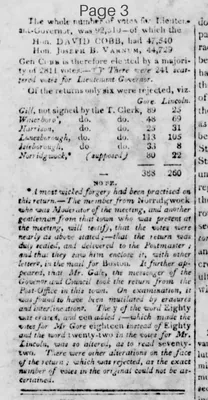 Page 3
The whole number of votes for Lieuten-
ant-Governor, was 92,510—of which the
Hon. DAVID COBB, had 47,540
Hon. JOSEPH B. VARNUM, 44,729
Gen COBB is therefore elected by a majori-
ty of 2811 votes. There were 241 scat-
tered votes for Lieutenant Governor.
Of the returns only six were rejected, viz.
Gore. Lincoln.
Gill, not signed by the T. Clerk, 89 25
Waterboro', do. do. 48 69
Harrison, do. do. 25 31
Lanesborough, do. do. 113 105
do. do. 33 8
Norridgwock,* (supposed) 80 22
388 260
NOTE.
* A most wicked forgery had been practised on
this return.—The member from Norridgwock
who was Moderator of the meeting, and another
gentleman from that town who was present at
the meeting, will testify, that the votes were
nearly as above stated—that the return was
duly sealed, and delivered to the Postmaster
and that they saw him enclose it, with other
letters, in the mail for Boston. It further ap-
peared, that Mr. Gale, the messenger of the
Governor and Council took the return from the
Post-Office in this town. On examination, it
was found to have been mutilated by erasures
and interlineations. The y of the word Eighty
was erased, and een added;—which made the
votes for Mr Gore eighteen instead of Eighty
and the word twenty-two in the votes for Mr.
Lincoln, was so altered, as to read seventy-
two. There were other alterations on the face
of the return; which was rejected, as the exact
number of votes in the original could not be as-
certained.